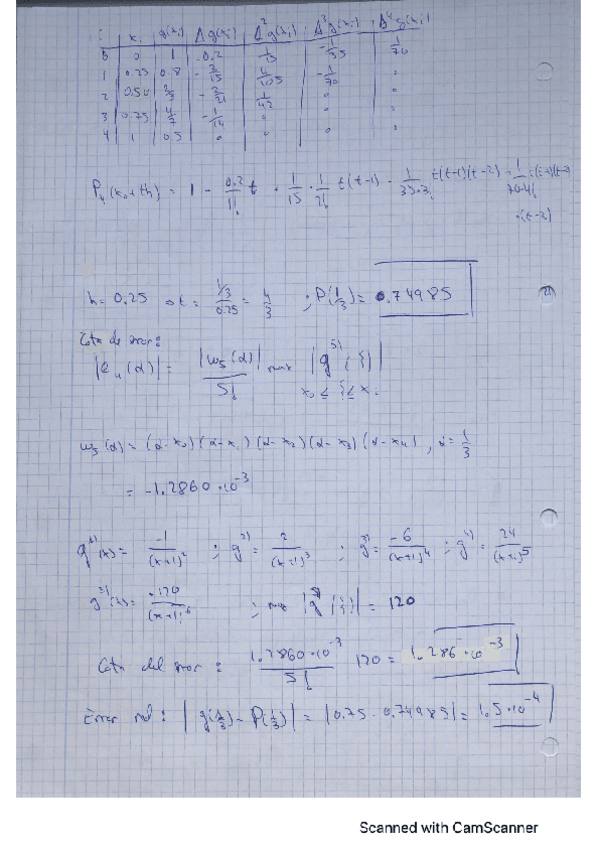 i x_i g(x_i) Δg(x_i) Δ²g(x_i) Δ³g(x_i) Δ⁴g(x_i)
0 0 1 -0.2 1/15 -1/35 1/70
1 0.25 0.8 -2/15 4/105 -1/70 0
2 0.50 2/3 -2/21 1/42 0 0
3 0.75 4/7 -1/14 0 0 0
4 1 0.5 0 0 0 0
P₄(x₀+th) = 1 - 0.2/1! t + 1/15 · 1/2! t(t-1) - 1/35·3! t(t-1)(t-2) + 1/70·4! t(t-1)(t-2)
·(t-3)
h = 0.25 t = (1/3)/0.25 = 4/3 ; P(1/3) = 0.74985
Cota de error:
|R₄(α)| = |ω₅(α)|/5! max |g⁵⁾(ξ)|
ω₅(α) = (α-x₀)(α-x₁)(α-x₂)(α-x₃)(α-x₄), α = 1/3
= -1.2860·10⁻³
g¹⁾(x) = -1/(x+1)² ; g²⁾ = 2/(x+1)³ ; g³⁾ = -6/(x+1)⁴ ; g⁴⁾ = 24/(x+1)⁵
g⁵⁾(x) = -120/(x+1)⁶ ; max |g⁵⁾(ξ)| = 120
Cota del error : 1.2860·10⁻³/5! 120 = 1.286·10⁻³
Error real : |g(1/3) - P(1/3)| = |0.75 - 0.74985| = 1.5·10⁻⁴
Scanned with CamScanner